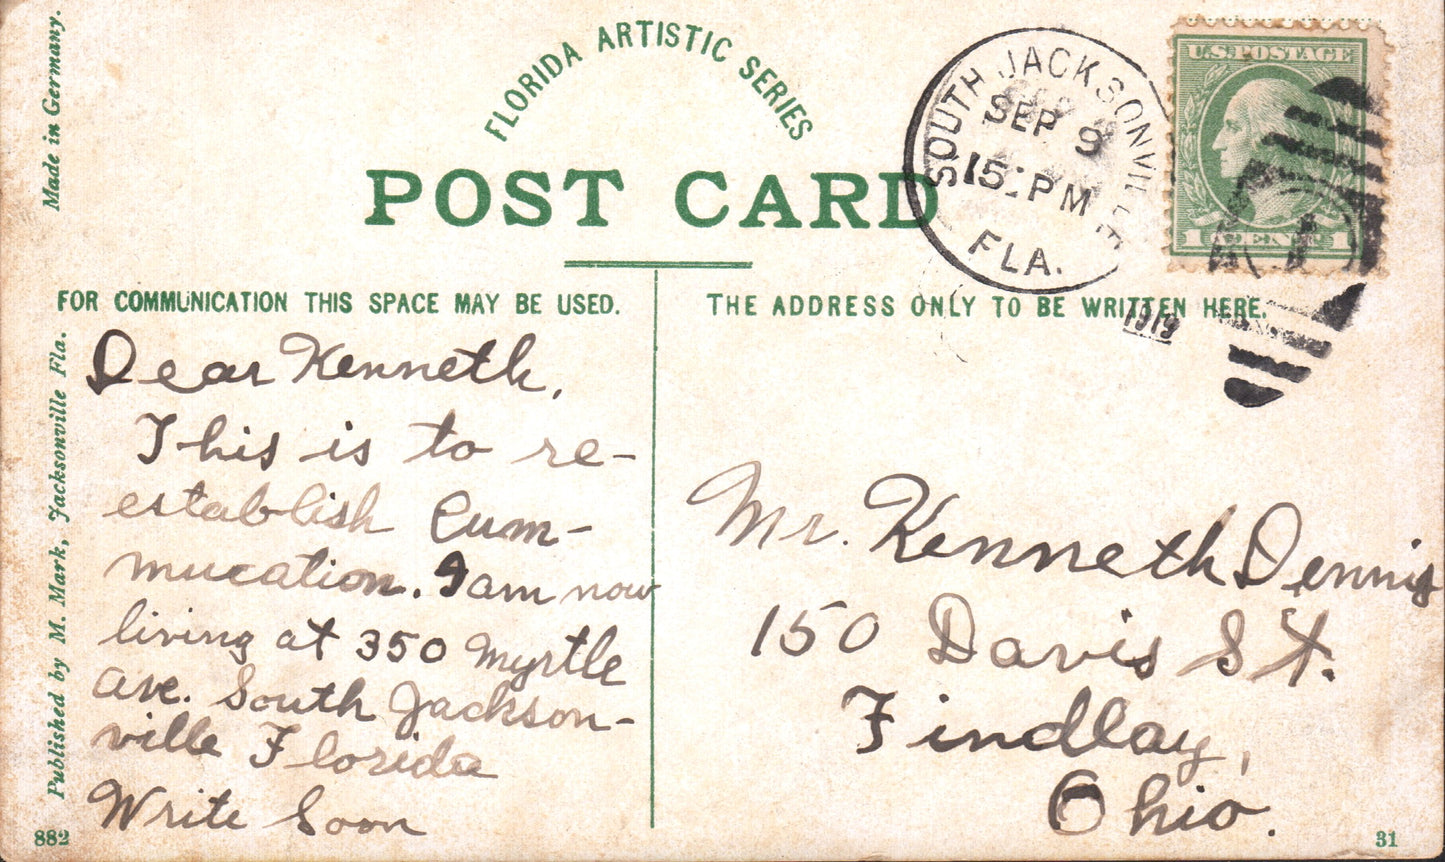 Made in Germany.
FLORIDA ARTISTIC SERIES
POST CARD
SOUTH JACKSONVILLE
SEP 9
FLA.
U.S. POSTAGE
1 CENT 1
FOR COMMUNICATION THIS SPACE MAY BE USED.
THE ADDRESS ONLY TO BE WRITTEN HERE.
1919
Dear Kenneth,
This is to re-
establish Cum-
mucation. I am now
living at 350 Myrtle
ave. South Jackson-
ville Florida
Write Soon
Mr. Kenneth Dennis
150 Davis St.
Findlay,
Ohio.
Published by M. Mark, Jacksonville Fla.
882
31